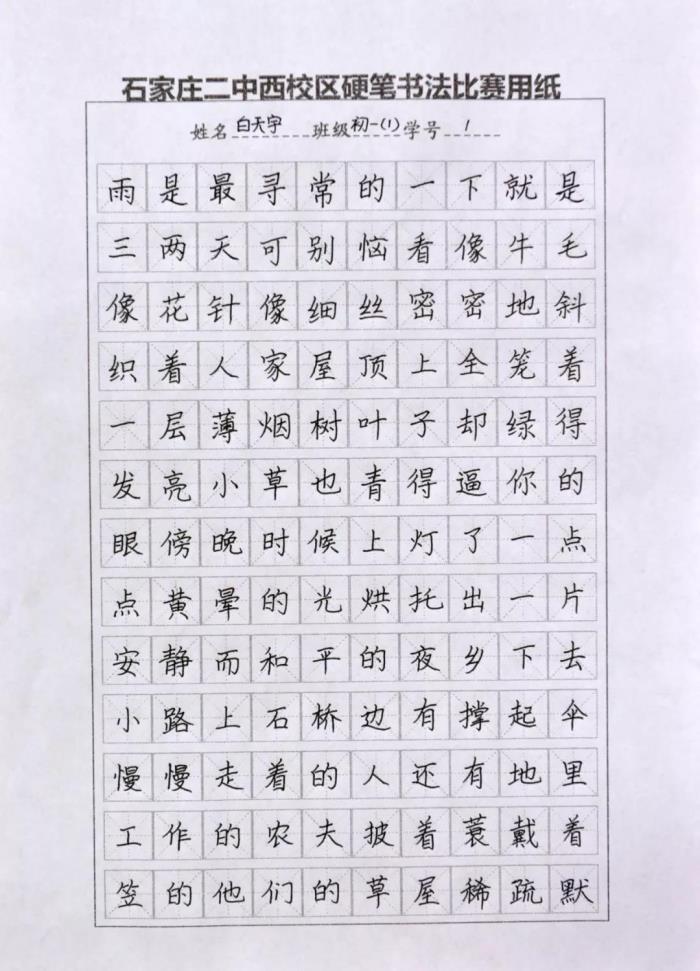 石家庄二中西校区硬笔书法比赛用纸
姓名 白天宇 班级 初一(1) 学号 1
雨是最寻常的一下就是
三两天可别恼看像牛毛
像花针像细丝密密地斜
织着人家屋顶上全笼着
一层薄烟树叶子却绿得
发亮小草也青得逼你的
眼傍晚时候上灯了一点
点黄晕的光烘托出一片
安静而和平的夜乡下去
小路上石桥边有撑起伞
慢慢走着的人还有地里
工作的农夫披着蓑戴着
笠的他们的草屋稀疏默